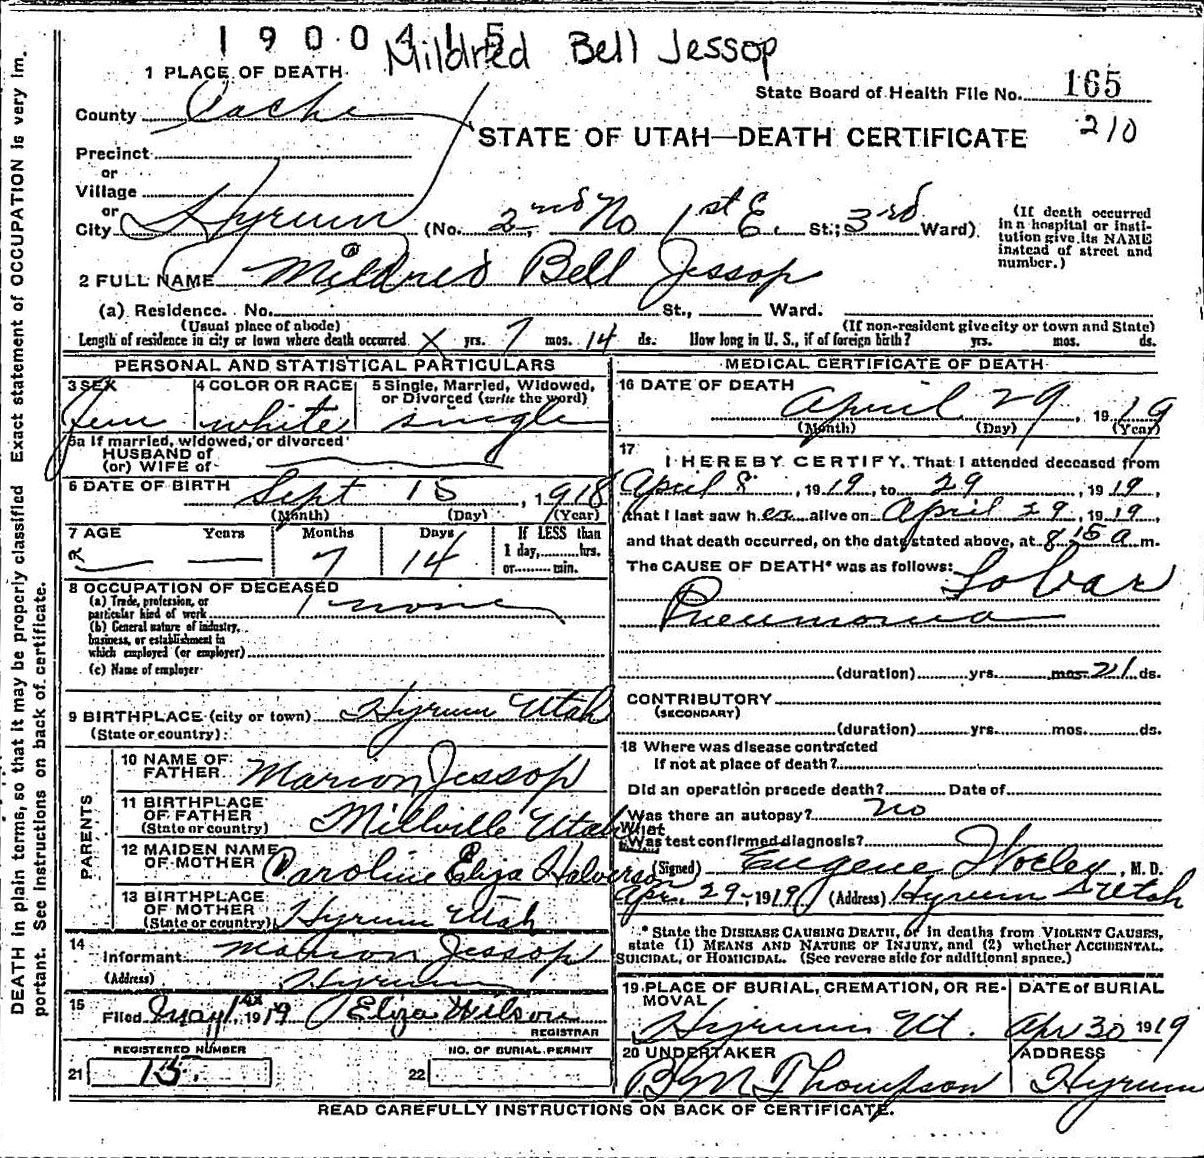 1900415
Mildred Bell Jessop
1 PLACE OF DEATH
State Board of Health File No. 165
210
County Cache
STATE OF UTAH—DEATH CERTIFICATE
Precinct
or
Village
or
City Hyrum (No. 2nd No 1st E. St.; 3rd Ward)
(If death occurred in a hospital or institution give its NAME instead of street and number.)
2 FULL NAME Mildred Bell Jessop
(a) Residence. No. St., Ward.
(Usual place of abode) (If non-resident give city or town and State)
Length of residence in city or town where death occurred X yrs. 7 mos. 14 ds. How long in U. S., if of foreign birth? yrs. mos. ds.
PERSONAL AND STATISTICAL PARTICULARS
3 SEX Fem
4 COLOR OR RACE white
5 Single, Married, Widowed, or Divorced (write the word) single
5a If married, widowed, or divorced
HUSBAND of
(or) WIFE of
6 DATE OF BIRTH Sept 15, 1918
(Month) (Day) (Year)
7 AGE Years Months 7 Days 14
If LESS than
1 day, hrs.
or min.
8 OCCUPATION OF DECEASED
(a) Trade, profession, or
particular kind of work none
(b) General nature of industry,
business, or establishment in
which employed (or employer)
(c) Name of employer
9 BIRTHPLACE (city or town) Hyrum Utah
(State or country)
PARENTS
10 NAME OF FATHER Marion Jessop
11 BIRTHPLACE OF FATHER (State or country) Millville Utah
12 MAIDEN NAME OF MOTHER Caroline Eliza Halverson
13 BIRTHPLACE OF MOTHER (State or country) Hyrum Utah
14
Informant Marion Jessop
(Address) Hyrum
15
Filed May 1st, 1919 Eliza Wilson
REGISTRAR
REGISTERED NUMBER
21 15.
NO. OF BURIAL PERMIT
22
MEDICAL CERTIFICATE OF DEATH
16 DATE OF DEATH
April 29, 1919
(Month) (Day) (Year)
17
I HEREBY CERTIFY, That I attended deceased from
April 8, 1919, to 29, 1919,
that I last saw her alive on April 29, 1919,
and that death occurred, on the date stated above, at 8 15 a m.
The CAUSE OF DEATH* was as follows: Lobar
Pneumonia
(duration) yrs. mos. 21 ds.
CONTRIBUTORY
(SECONDARY)
(duration) yrs. mos. ds.
18 Where was disease contracted
If not at place of death?
Did an operation precede death? Date of
Was there an autopsy? no
What
test confirmed diagnosis?
(Signed) Eugene Worley, M. D.
Apr. 29-1919 (Address) Hyrum Utah
* State the DISEASE CAUSING DEATH, or in deaths from VIOLENT CAUSES,
state (1) MEANS AND NATURE OF INJURY, and (2) whether ACCIDENTAL,
SUICIDAL, or HOMICIDAL. (See reverse side for additional space.)
19 PLACE OF BURIAL, CREMATION, OR REMOVAL Hyrum Ut.
DATE of BURIAL Apr 30 1919
20 UNDERTAKER Thompson
ADDRESS Hyrum
READ CAREFULLY INSTRUCTIONS ON BACK OF CERTIFICATE.
DEATH in plain terms, so that it may be properly classified Exact statement of OCCUPATION is very im.
portant. See instructions on back of certificate.